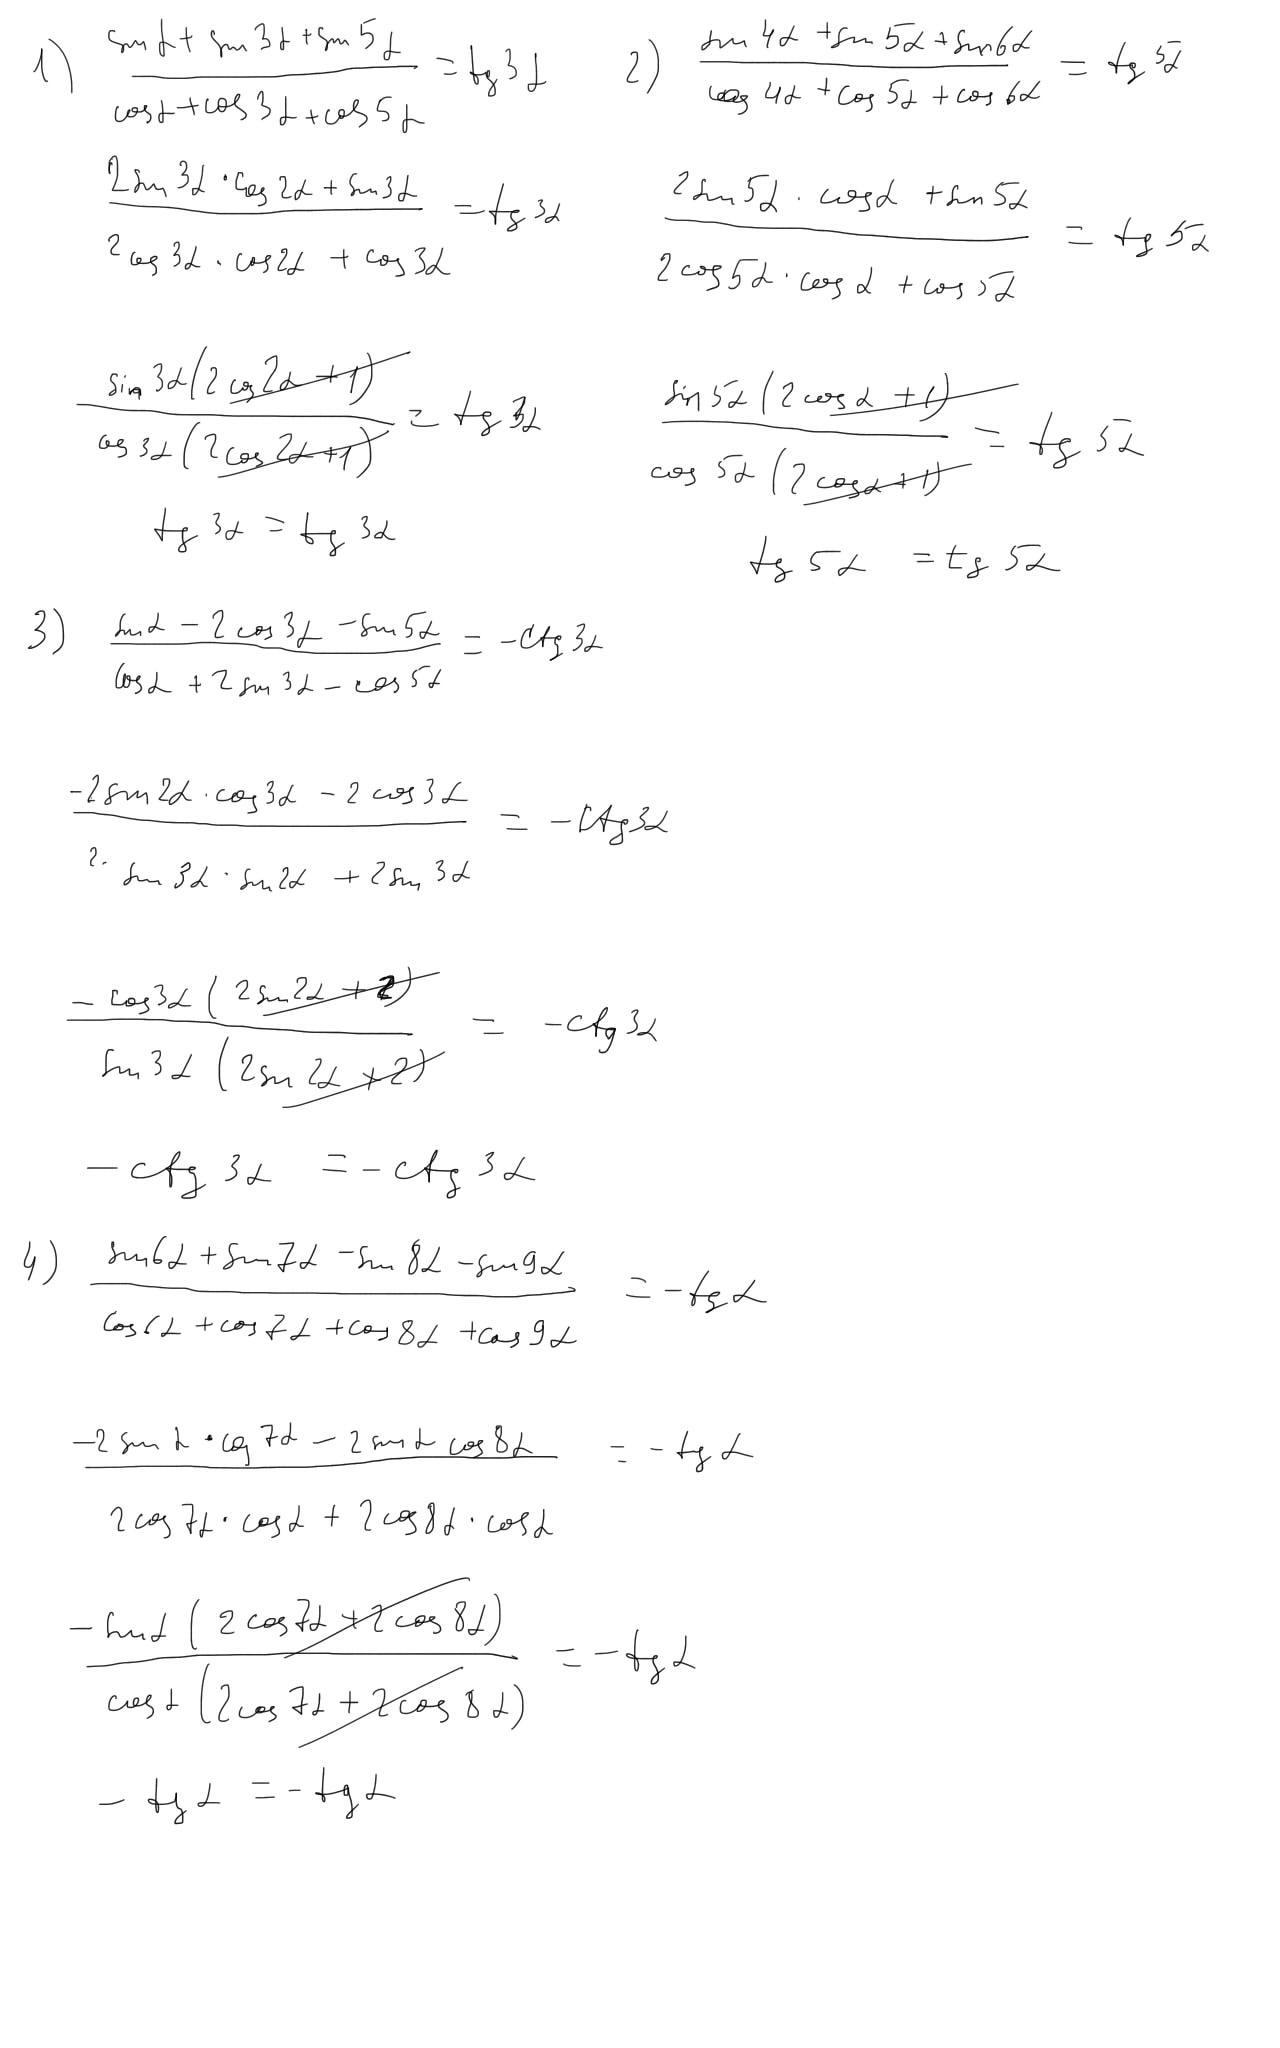 1) (sin α + sin 3α + sin 5α)/(cos α + cos 3α + cos 5α) = tg 3α
(2 sin 3α · cos 2α + sin 3α)/(2 cos 3α · cos 2α + cos 3α) = tg 3α
(sin 3α (2 cos 2α + 1))/(cos 3α (2 cos 2α + 1)) = tg 3α
tg 3α = tg 3α
2) (sin 4α + sin 5α + sin 6α)/(cos 4α + cos 5α + cos 6α) = tg 5α
(2 sin 5α · cos α + sin 5α)/(2 cos 5α · cos α + cos 5α) = tg 5α
(sin 5α (2 cos α + 1))/(cos 5α (2 cos α + 1)) = tg 5α
tg 5α = tg 5α
3) (sin α - 2 cos 3α - sin 5α)/(cos α + 2 sin 3α - cos 5α) = -ctg 3α
(-2 sin 2α · cos 3α - 2 cos 3α)/(2 · sin 3α · sin 2α + 2 sin 3α) = -ctg 3α
(-cos 3α (2 sin 2α + 2))/(sin 3α (2 sin 2α + 2)) = -ctg 3α
-ctg 3α = -ctg 3α
4) (sin 6α + sin 7α - sin 8α - sin 9α)/(cos 6α + cos 7α + cos 8α + cos 9α) = -tg α
(-2 sin α · cos 7α - 2 sin α cos 8α)/(2 cos 7α · cos α + 2 cos 8α · cos α) = -tg α
(-sin α (2 cos 7α + 2 cos 8α))/(cos α (2 cos 7α + 2 cos 8α)) = -tg α
-tg α = -tg α